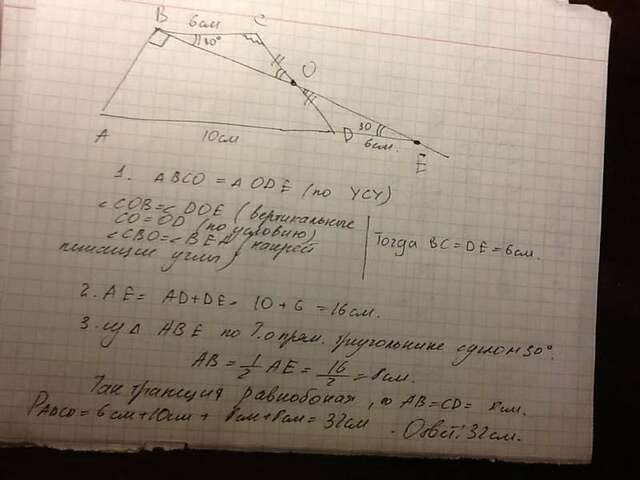 B 6см C
30°
O
A 10см D 30 6см. E
1. △BCO = △ODE (по УСУ)
∠COB = ∠DOE (вертикальные
CO = OD (по условию)
∠CBO = ∠BEA (накрест
лежащие углы)
Тогда BC = DE = 6см.
2. AE = AD + DE = 10 + 6 = 16см.
3. из △ ABE по Т. о прям. треугольнике с углом 30°.
AB = 1/2 AE = 16/2 = 8см.
Так трапеция равнобокая, то AB = CD = 8см.
PABCD = 6см + 10см + 8см + 8см = 32см. Ответ: 32см.